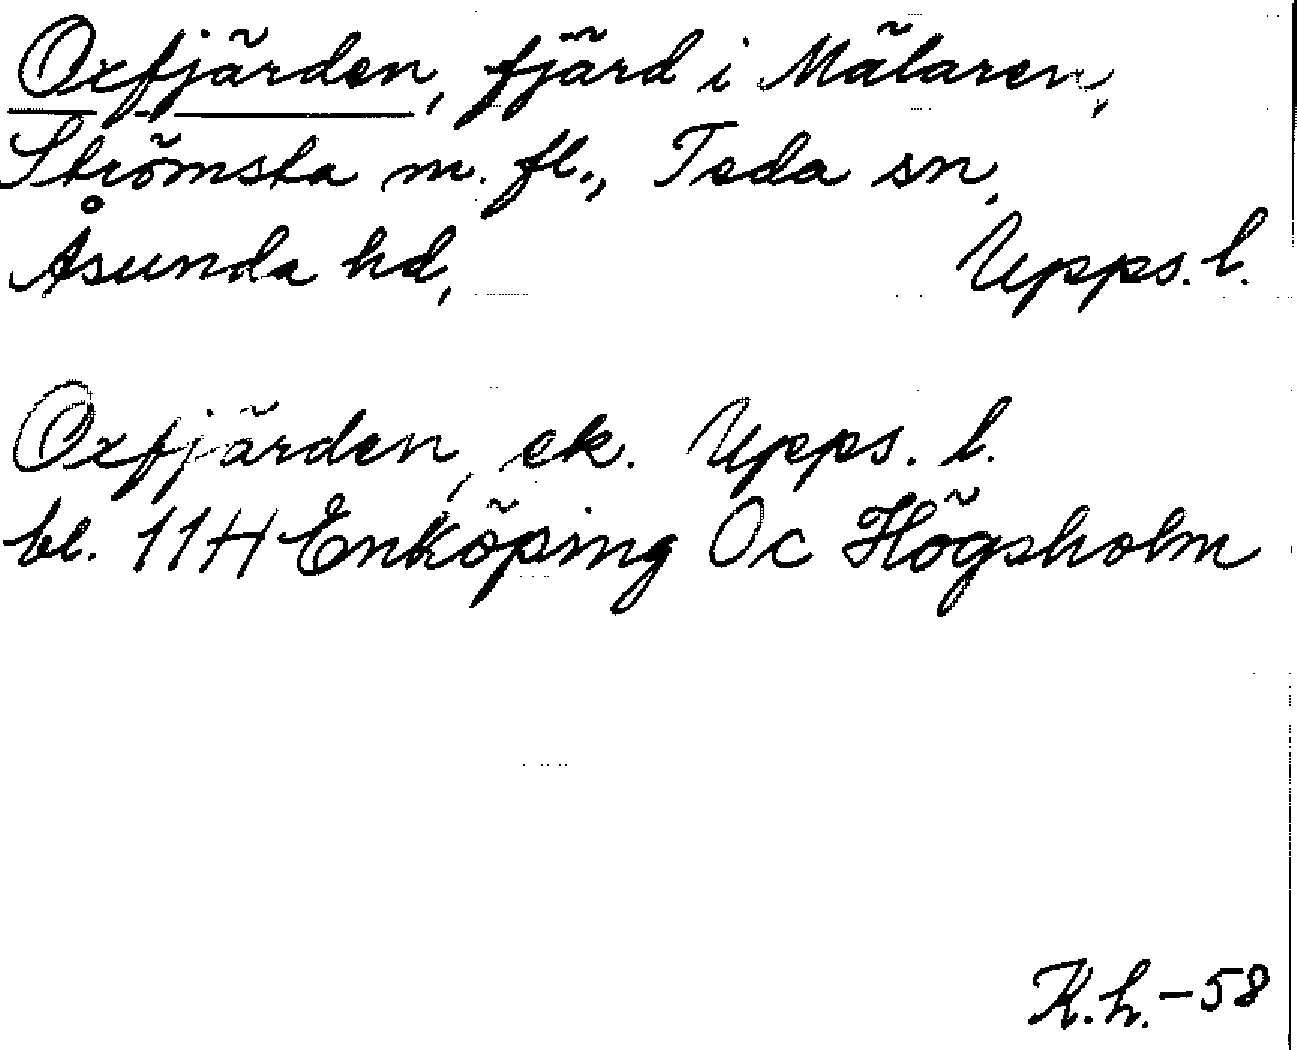 Oxfjärden, fjärd i Mälaren,
Strömsta m. fl., Teda sn,
Åsunda hd, Upps. l.
Oxfjärden, ek. Upps. l.
bl. 11H Enköping Oc Högsholm
K.h. - 58